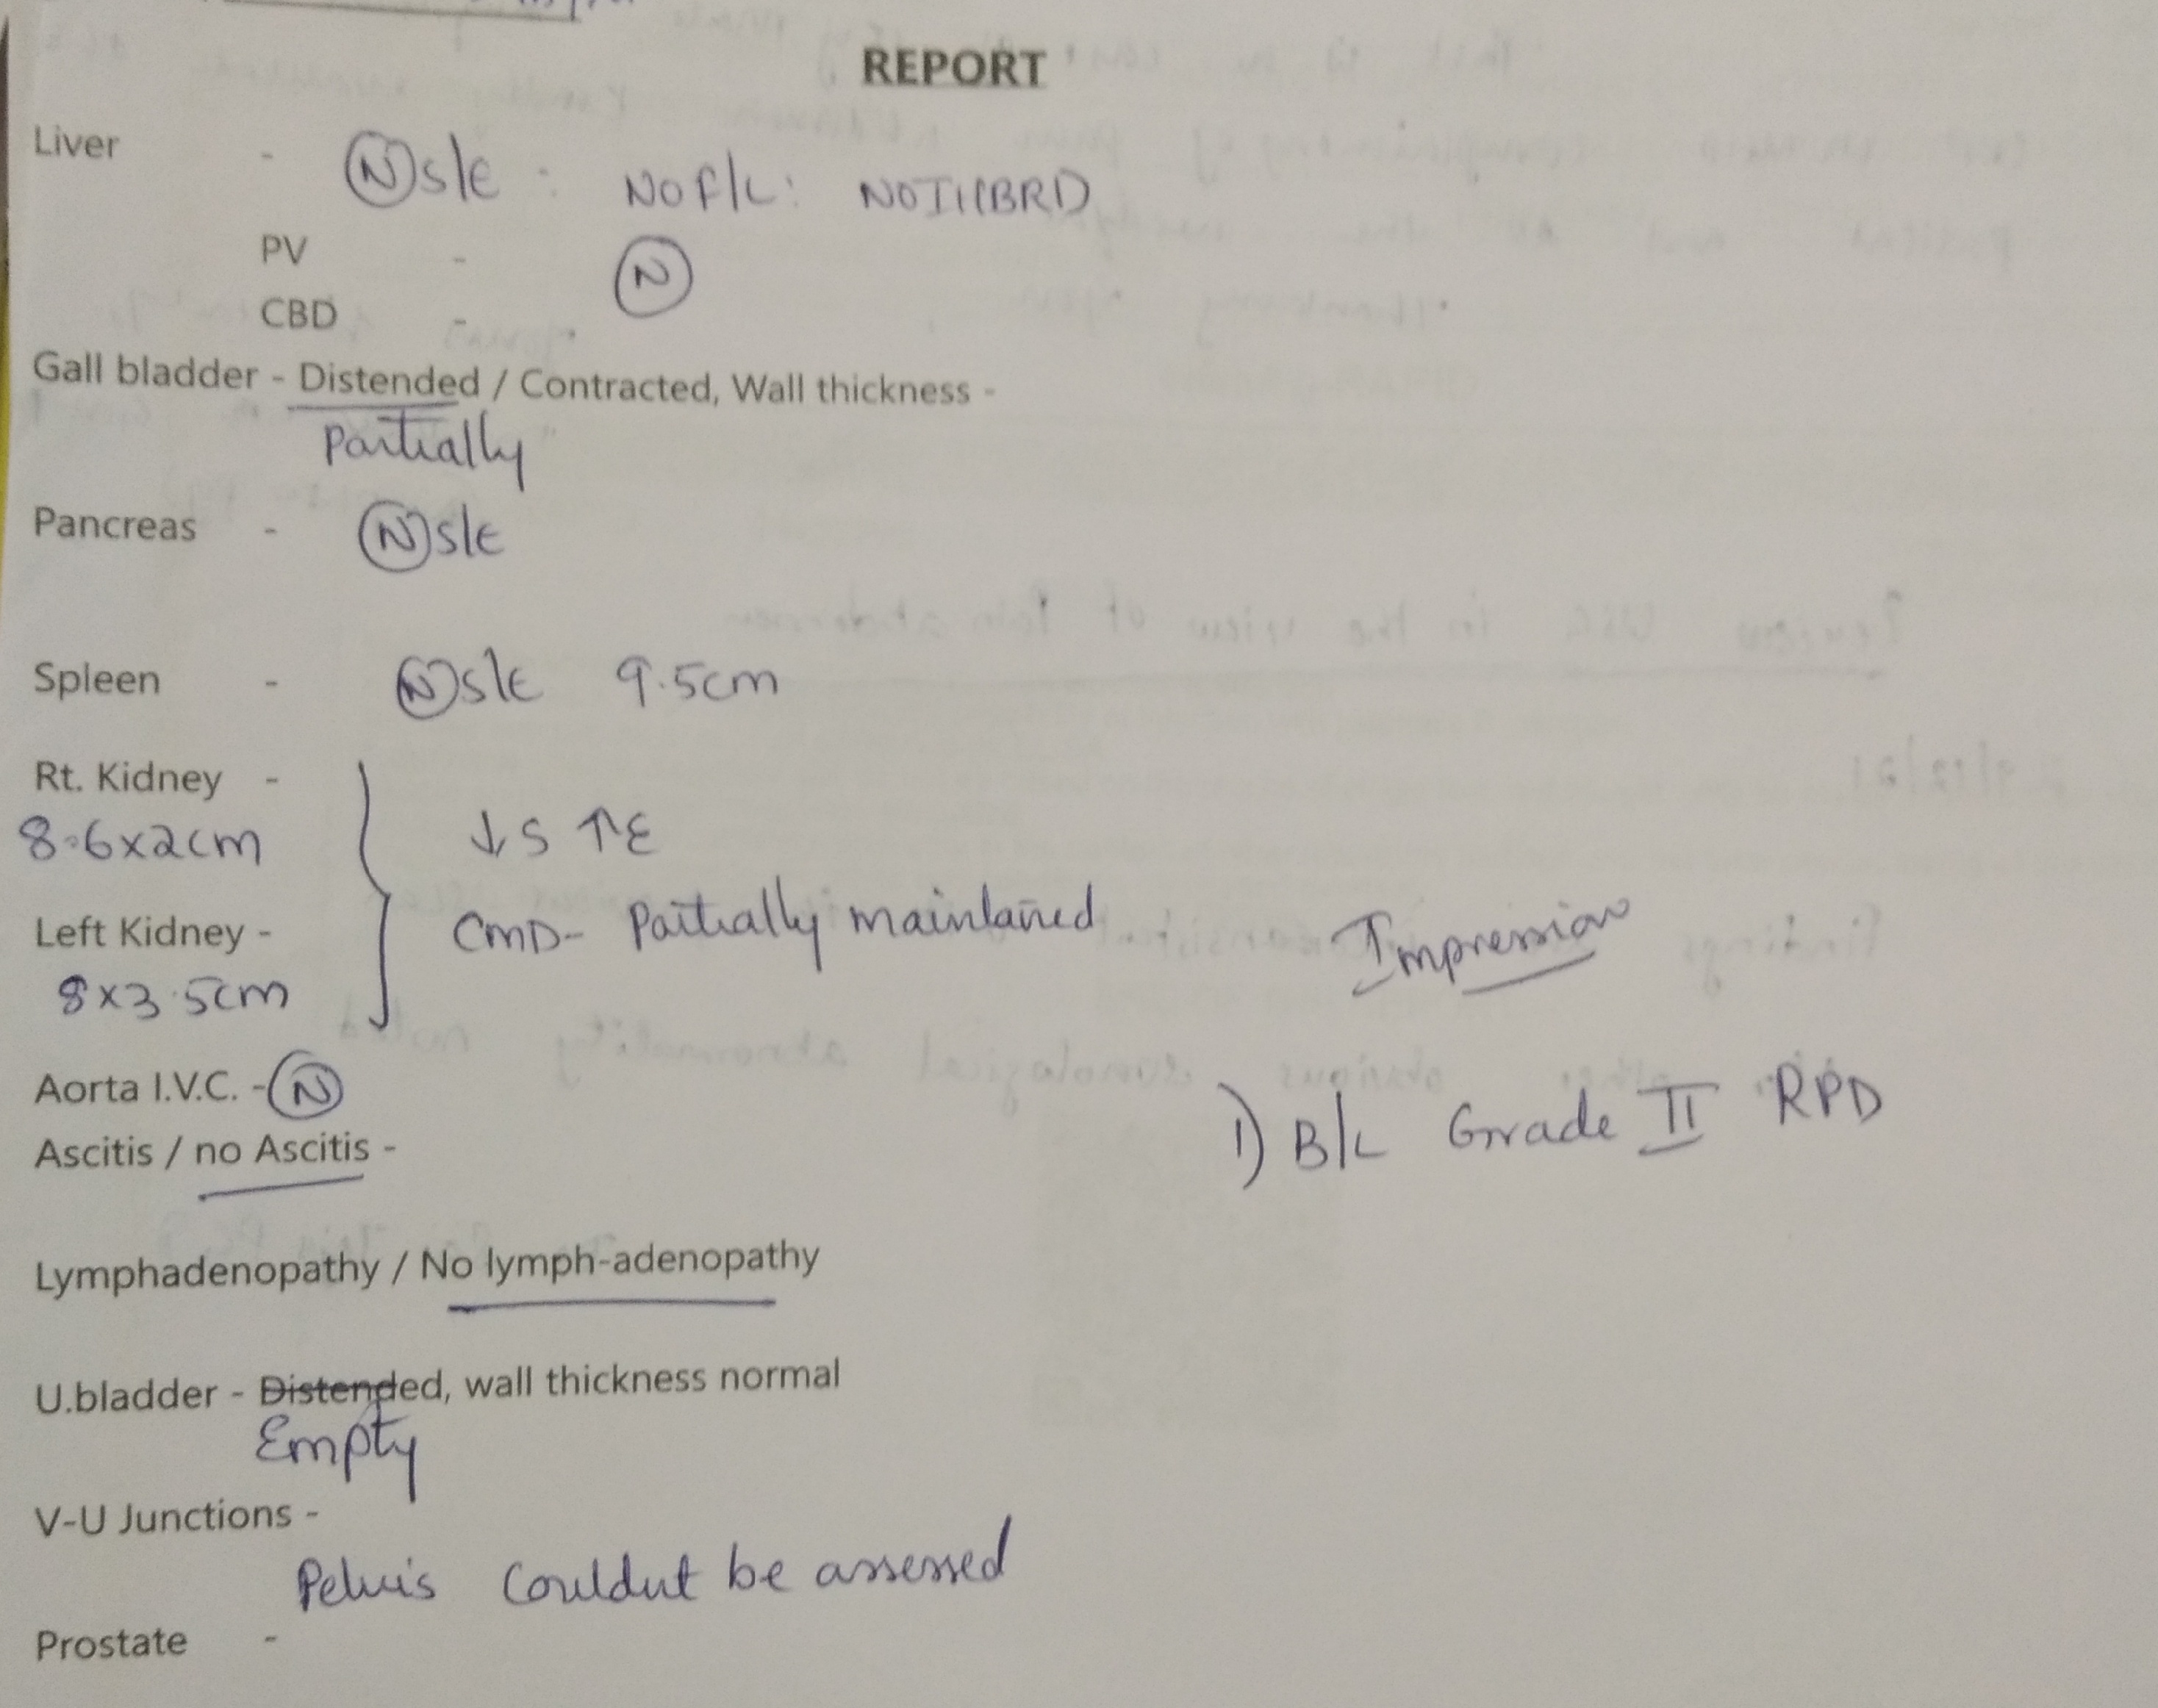 REPORT
Liver - (N) S/E : NO F/L : NO IHBRD
PV - (N)
CBD -
Gall bladder - Distended / Contracted, Wall thickness -
Partially
Pancreas - (N) S/E
Spleen - (N) S/E 9.5cm
Rt. Kidney -
8.6x2cm
↓S ↑E
Left Kidney - CMD- Partially maintained
8x3.5cm
Impression
Aorta I.V.C. - (N)
1) B/L Grade II RPD
Ascitis / no Ascitis -
Lymphadenopathy / No lymph-adenopathy
U.bladder - Distended, wall thickness normal
Empty
V-U Junctions -
Pelvis couldnt be assessed
Prostate -